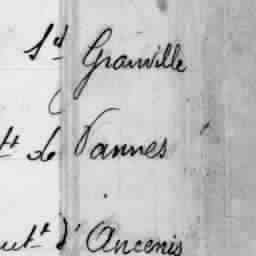 Sd Granville
tt de Vannes
utt d'Ancenis